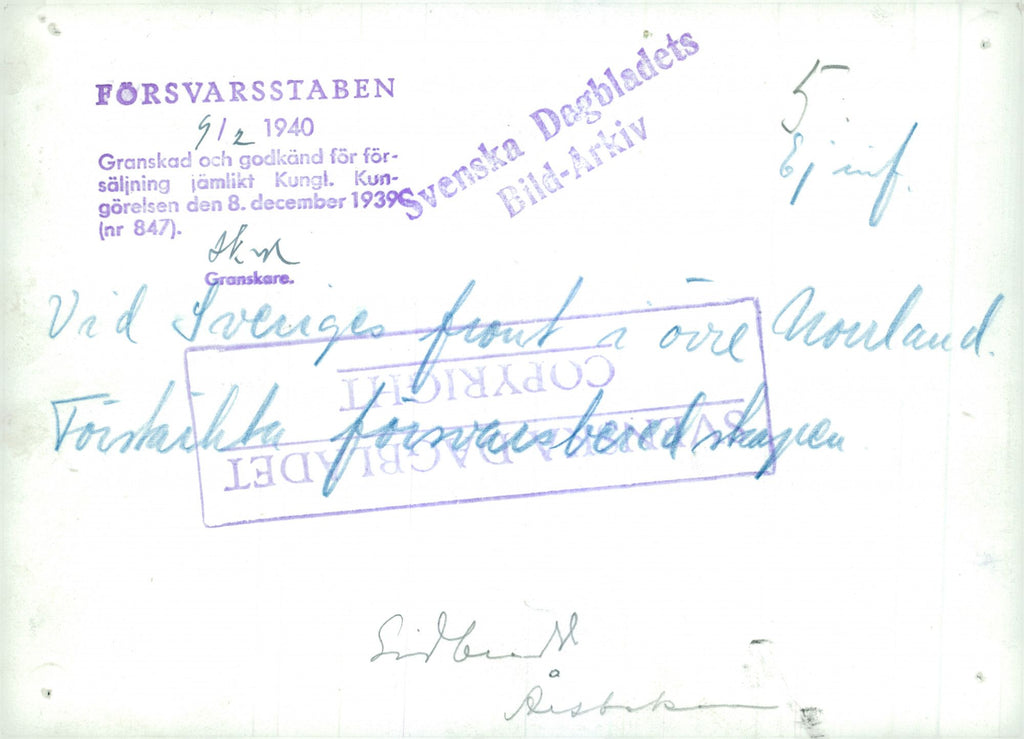 FÖRSVARSSTABEN
9/2 1940
Granskad och godkänd för för-
säljning jämlikt Kungl. Kun-
görelsen den 8. december 1939
(nr 847).
Granskare.
Svenska Dagbladets
Bild-Arkiv
5
Ej inf.
Vid Sveriges front i övre Norrland.
Förstärkta försvarsberedskapen
COPYRIGHT
SVENSKA DAGBLADET
Årsboken